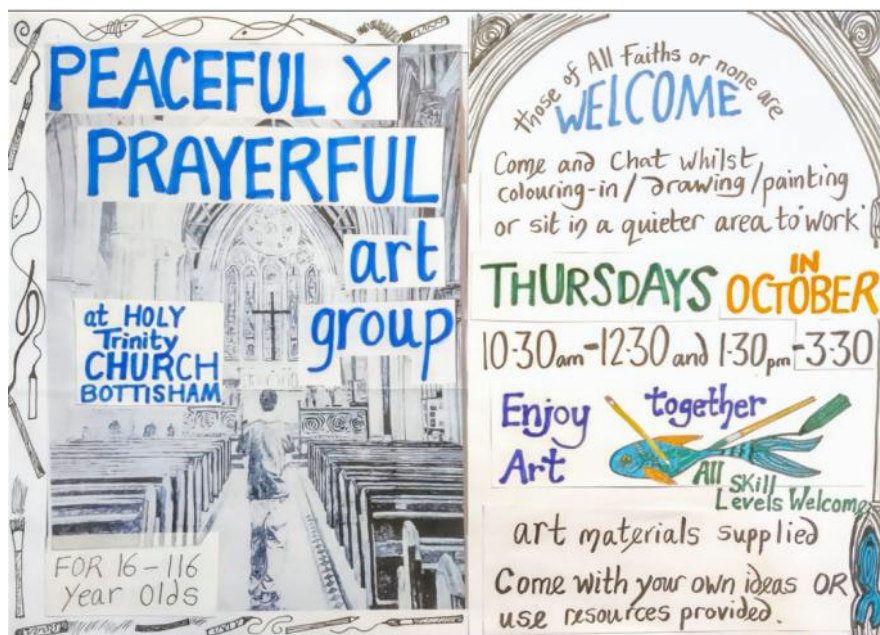 PEACEFUL &
PRAYERFUL
art
group
at HOLY
Trinity
CHURCH
BOTTISHAM
FOR 16-116
Year Olds
those of All Faiths or none are
WELCOME
Come and Chat whilst
colouring-in/drawing/painting
or sit in a quieter area to 'work'
THURSDAYS IN
OCTOBER
10.30am-12.30 and 1.30pm-3.30
Enjoy together
Art
All
Skill
Levels Welcome
art materials supplied
Come with your own ideas OR
use resources provided.